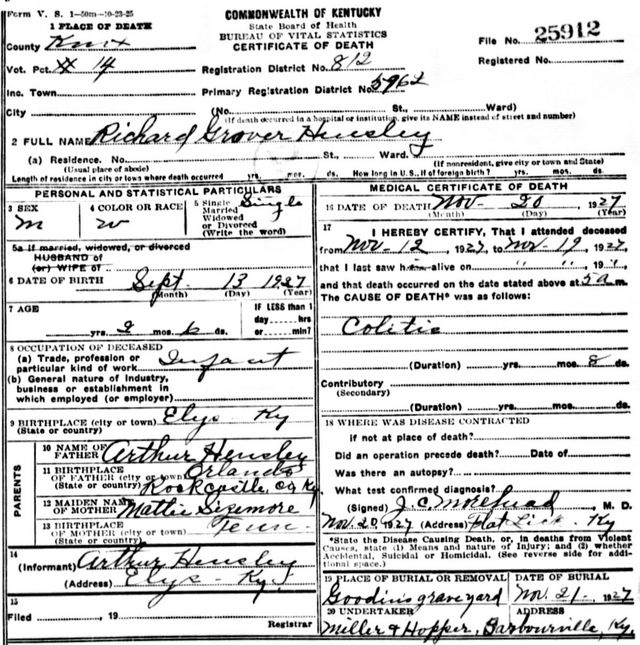 Form V. S. 1—50m—10-23-25
COMMONWEALTH OF KENTUCKY
State Board of Health
BUREAU OF VITAL STATISTICS
CERTIFICATE OF DEATH
File No. 25912
Registered No.
1 PLACE OF DEATH
County Knox
Vot. Pct. # 14
Registration District No. 812
Inc. Town
Primary Registration District No. 5962
City (No. St., Ward)
(If death occurred in a hospital or institution, give its NAME instead of street and number)
2 FULL NAME Richard Grover Hensley
(a) Residence. No. St., Ward.
(Usual place of abode) (If nonresident, give city or town and State)
Length of residence in city or town where death occurred yrs. mos. ds. How long in U. S., if of foreign birth? yrs. mos. ds.
PERSONAL AND STATISTICAL PARTICULARS
3 SEX 4 COLOR OR RACE 5 Single Married Widowed or Divorced (Write the word)
m w Single
5a If married, widowed, or divorced
HUSBAND of
(or) WIFE of
6 DATE OF BIRTH Sept. 13 1927
(Month) (Day) (Year)
7 AGE IF LESS than 1 day hrs or min?
yrs. 2 mos. 6 ds.
8 OCCUPATION OF DECEASED
(a) Trade, profession or particular kind of work Infant
(b) General nature of industry, business or establishment in which employed (or employer)
9 BIRTHPLACE (city or town) Elys Ky
(State or country)
PARENTS
10 NAME OF FATHER Arthur Hensley
11 BIRTHPLACE OF FATHER (city or town) Orlando
(State or country) Rockcastle, Co, Ky.
12 MAIDEN NAME OF MOTHER Mattie Sizemore
13 BIRTHPLACE OF MOTHER (city or town) Tenn.
(State or country)
14 (Informant) Arthur Hensley
(Address) Elys - Ky.
15
Filed , 19
Registrar
MEDICAL CERTIFICATE OF DEATH
16 DATE OF DEATH Nov- 20 1927
(Month) (Day) (Year)
17 I HEREBY CERTIFY, That I attended deceased
from Nov-12, 1927, to Nov-19, 1927,
that I last saw him alive on " " , 19 "
and that death occurred on the date stated above at 5 a m.
The CAUSE OF DEATH* was as follows:
Colitis
(Duration) yrs. mos. 8 ds.
Contributory
(Secondary)
(Duration) yrs. mos. ds.
18 WHERE WAS DISEASE CONTRACTED
if not at place of death?
Did an operation precede death? Date of
Was there an autopsy?
What test confirmed diagnosis?
(Signed) J. C. M. D.
Nov. 20, 1927 (Address) Flat Lick Ky
*State the Disease Causing Death, or, in deaths from Violent
Causes, state (1) Means and nature of Injury; and (2) whether
Accidental, Suicidal or Homicidal. (See reverse side for additional space.)
19 PLACE OF BURIAL OR REMOVAL DATE OF BURIAL
Goodins graveyard Nov. 21-, 1927
20 UNDERTAKER ADDRESS
Miller & Hopper, Barbourville, Ky.